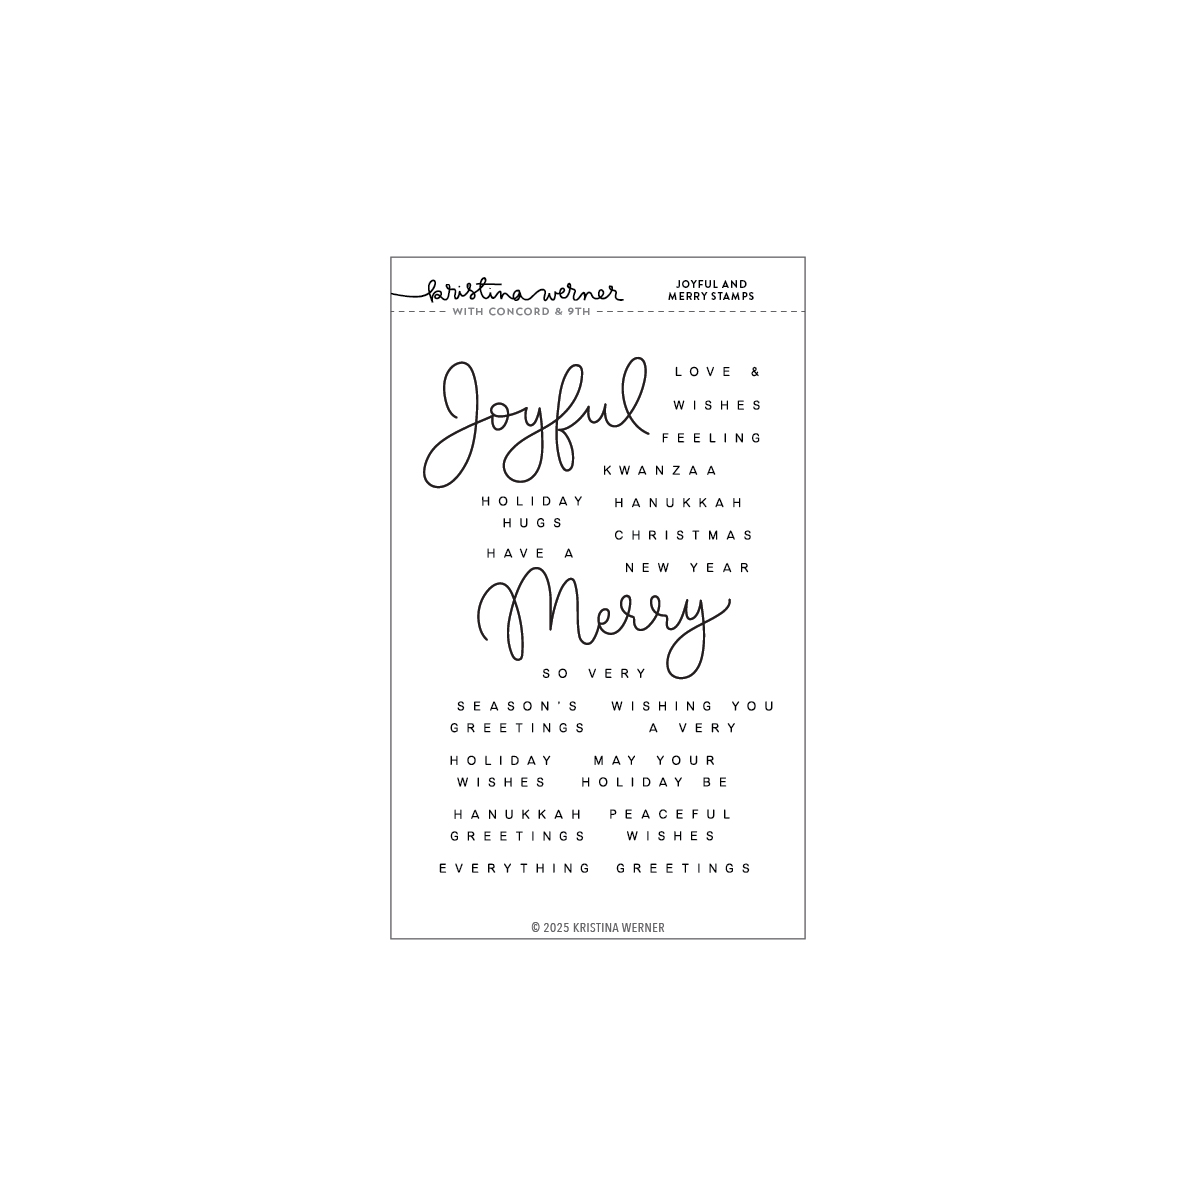 kristina werner
JOYFUL AND
MERRY STAMPS
WITH CONCORD & 9TH
Joyful
LOVE &
WISHES
FEELING
KWANZAA
HOLIDAY
HUGS
HANUKKAH
CHRISTMAS
HAVE A
NEW YEAR
Merry
SO VERY
SEASON'S
GREETINGS
WISHING YOU
A VERY
HOLIDAY
WISHES
MAY YOUR
HOLIDAY BE
HANUKKAH
GREETINGS
PEACEFUL
WISHES
EVERYTHING
GREETINGS
© 2025 KRISTINA WERNER